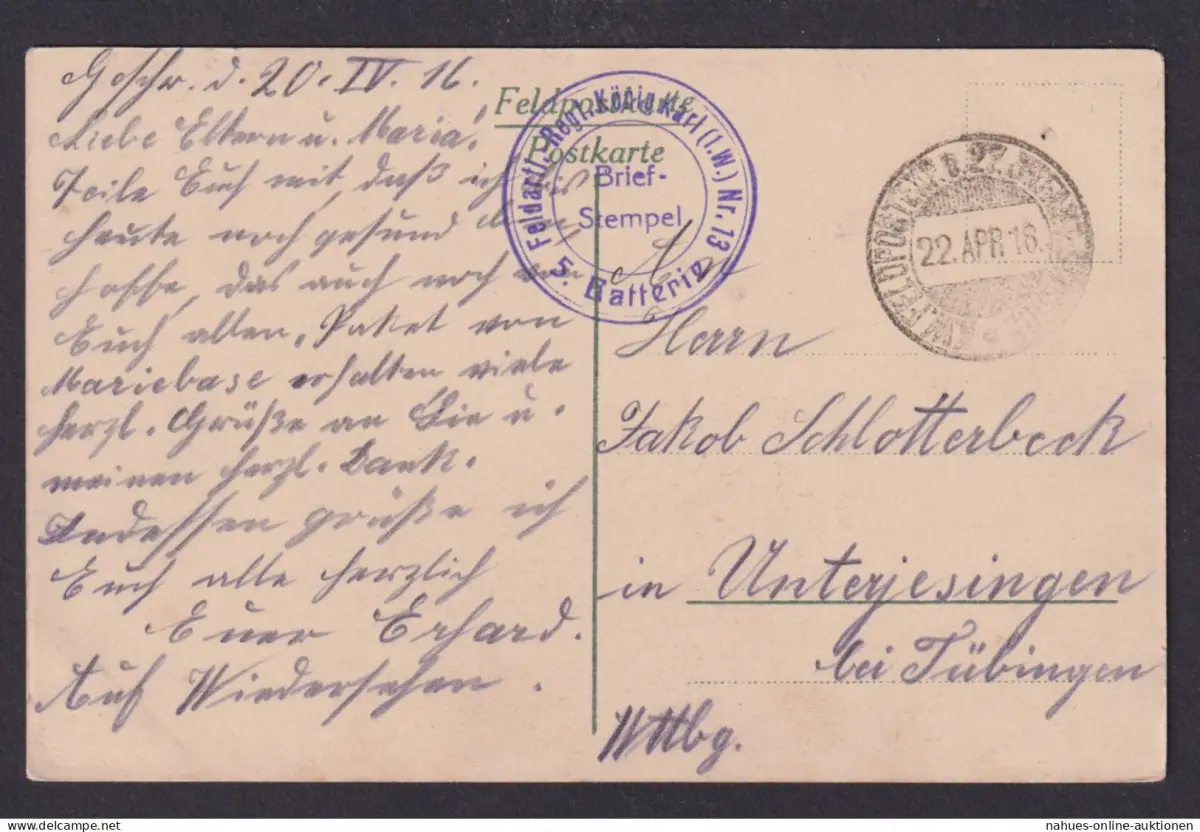 Geschr. d. 20. IV. 16.
Liebe Eltern u. Maria!
Teile Euch mit, daß ich bis
heute noch gesund bin
hoffe, das auch noch von
Euch allen. Paket von
Mariebase erhalten viele
herzl. Grüße an Sie u.
meinen herzl. Dank.
Indessen grüße ich
Euch alle herzlich
Euer Erhard.
Auf Wiedersehen.
Feldpostkarte
Postkarte
Feldart.-Regt. König Karl (I.W.) Nr. 13
Brief-
Stempel
5. Batterie
22. APR 16.
An
Herrn
Jakob Schlotterbeck
in Unterjesingen
bei Tübingen
Wttbg.
nahues-online-auktionen